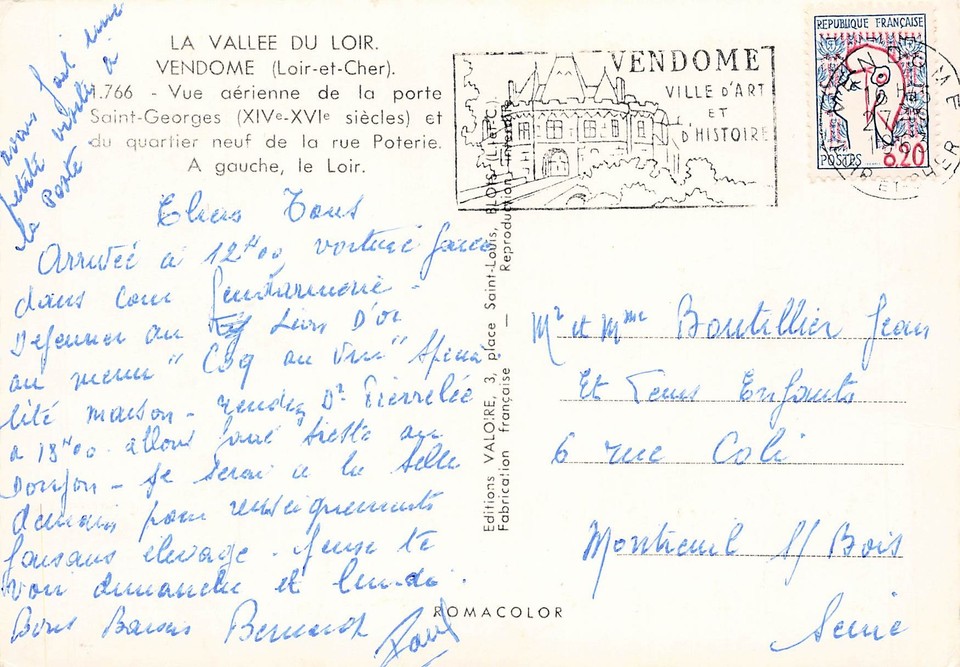 LA VALLEE DU LOIR.
VENDOME (Loir-et-Cher).
1.766 - Vue aérienne de la porte
Saint-Georges (XIVe-XVIe siècles) et
du quartier neuf de la rue Poterie.
A gauche, le Loir.
avons fait une
petite visite à
la Poste
Chers Tous
Arrivée à 12H00 voiture garée
dans cour Gendarmerie -
Dejeuner au Lion D'or
au menu "Coq au Vin" Spécia
lité maison - rendez Dr
a 18H00 - allons faire sieste au
Donjon - Je serai à la
demain pour renseignements
faisans élevage - Pense te
voir dimanche et lundi.
Bons Baisers Bernard
Paul
VENDOME
VILLE D'ART
ET
D'HISTOIRE
REPUBLIQUE FRANÇAISE
POSTES 0,20
VENDOME
LOIR-ET-CHER
Editions VALOIRE, 3, place Saint-Louis, BLOIS (L.-et-C.)
Fabrication française _ Reproduction interdite
Mr et Mme Boutillier Jean
Et Leurs Enfants
6 rue Coli
Montreuil S/ Bois
Seine
ROMACOLOR